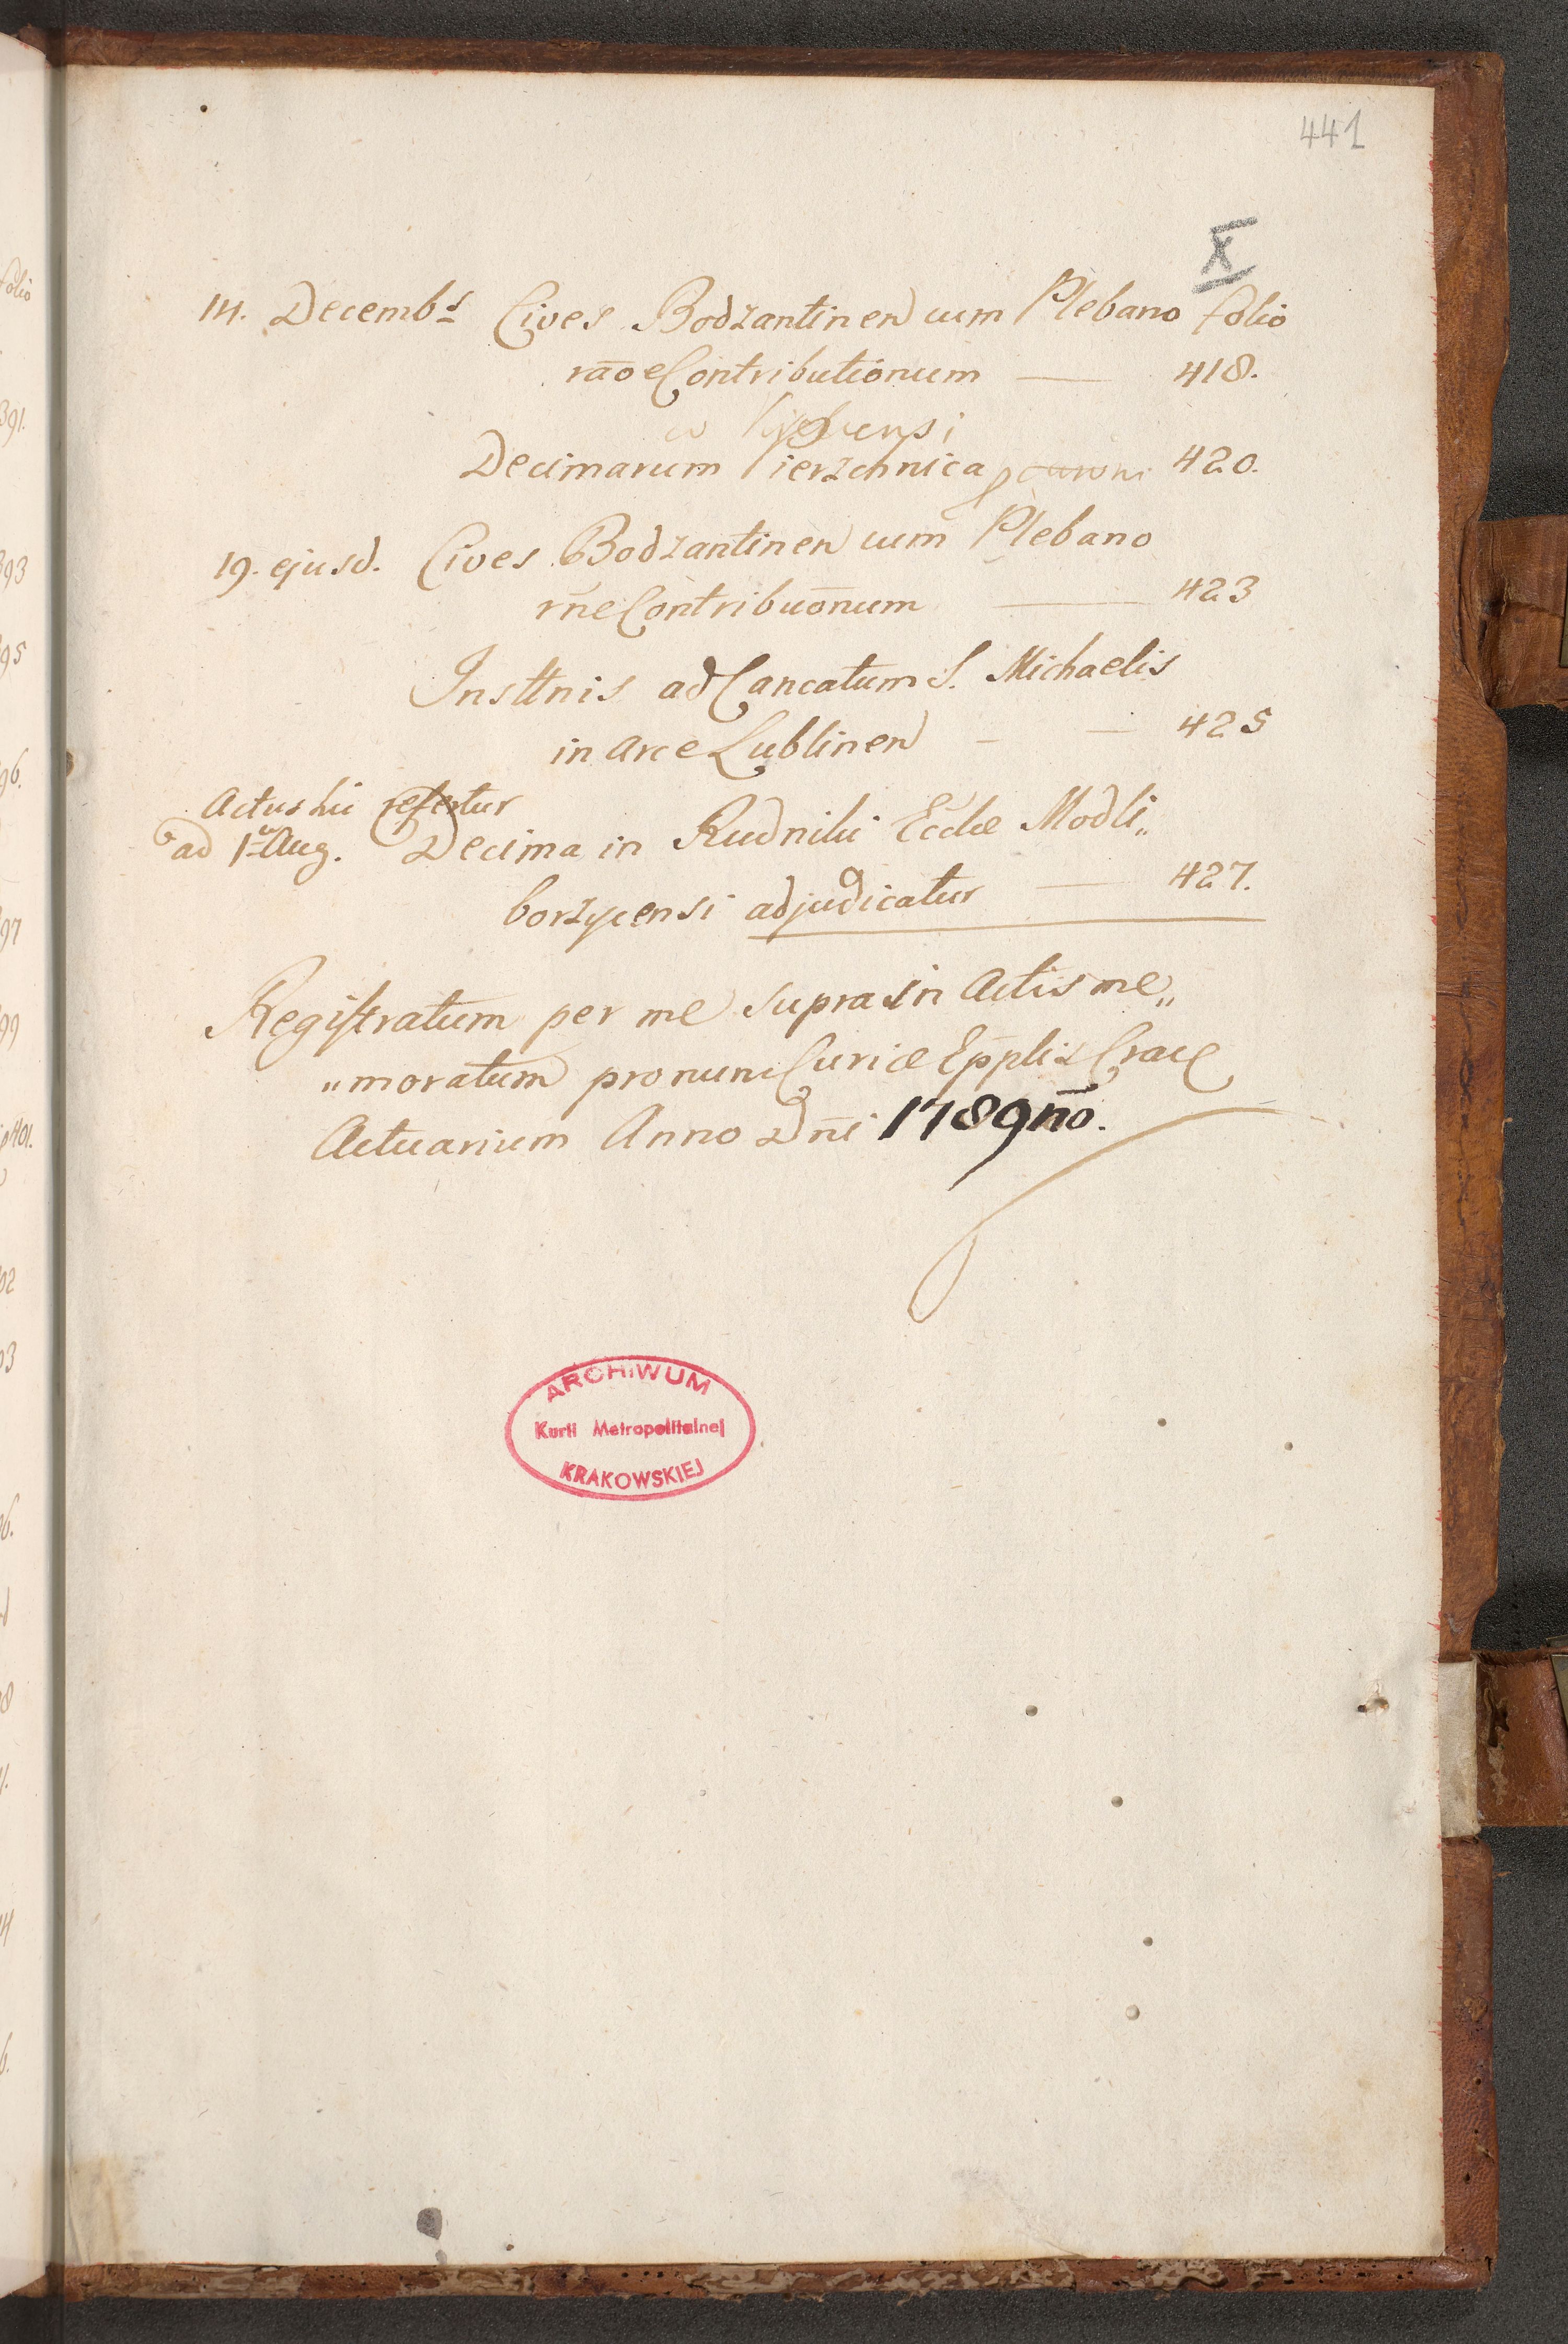 441
X
14. Decembs Cives Bodzantinen cum Plebano folio
rāoe Contributionum — 418.
Decimarum Pierzchnica 420.
19. ejusd. Cives Bodzantinen cum Plebano
rñe Contribuōnum — 423
Insttnis ad Cancatum S. Michaelis
in Arce Lublinen - — 425
Actus hic refertur
ad 1am Aug. Decima in Rudniki Eccłæ Modli„
borzycensi adjudicatur — 427.
Registratum per me supra in Actis me„
„moratum pro nunc Curiæ Epplis Crac
Actuarium Anno Dñi 1789ño.
ARCHIWUM
Kurii Metropolitalnej
KRAKOWSKIEJ
folio
391.
393
395
396.
397
399
401.